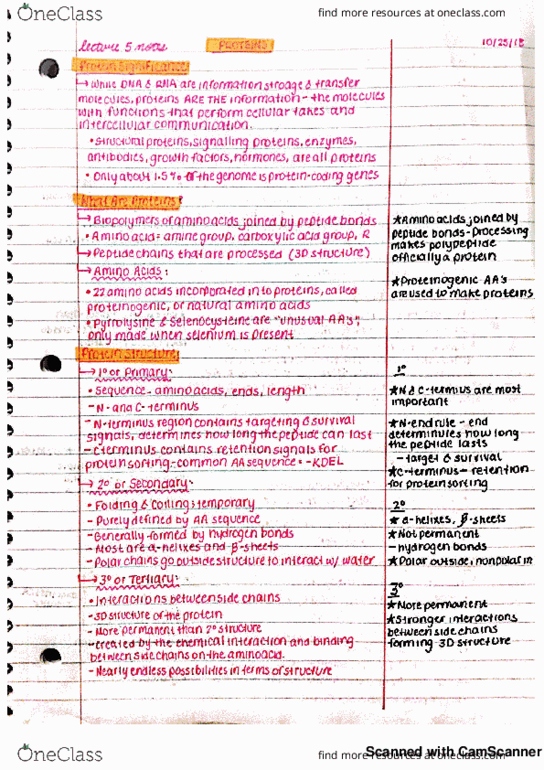 OneClass
find more resources at oneclass.com
lecture 5 notes
PROTEINS
10/25/18
Protein Significance
→ While DNA & RNA are information stroage & transfer
molecules, proteins ARE THE information - the molecules
with functions that perform cellular takes and
intercellular communication.
• Structural proteins, signalling proteins, enzymes,
antibodies, growth factors, hormones, are all proteins
• Only about 1.5% of the genome is protein-coding genes
What Are Proteins?
→ Biopolymers of amino acids joined by peptide bonds
• Amino acid = amine group, carboxylic acid group, R
→ Peptide chains that are processed (3D structure)
→ Amino Acids:
• 22 amino acids incorporated into proteins, called
proteinogenic, or natural amino acids
• Pyrrolysine & Selenocysteine are "unusual AA's",
only made when selenium is present
★Amino acids joined by
peptide bonds-Processing
makes polypeptide
officially a protein
★Proteinogenic AA's
are used to make proteins
Protein Structure
→ 1° or Primary:
• Sequence - amino acids, ends, length
- N- and C-terminus
- N-terminus region contains targeting & survival
signals, determines how long the peptide can last
- C terminus contains retention signals for
protein sorting - common AA sequence = -KDEL
→ 2° or Secondary:
• Folding & Coiling; temporary
- Purely defined by AA sequence
- Generally formed by hydrogen bonds
- Most are α-helixes and β-sheets
- Polar chains go outside structure to interact w/ water
→ 3° or Tertiary:
• Interactions between side chains
- 3D structure of the protein
- More permanent than 2° structure
- created by the chemical interaction and binding
between side chains on the amino acid.
- Nearly endless possibilities in terms of structure
1°
★N & C-terminus are most
important
★N-end rule - end
determinules how long
the peptide lasts
- target & survival
★C-terminus - retention
for protein sorting
2°
★ α-helixes, β-sheets
★Not permanent
- hydrogen bonds
★Polar outside, nonpolar in
3°
★More permanent
★Stronger interactions
between side chains
forming 3D structure
OneClass
find more resources at oneclass.com
Scanned with CamScanner